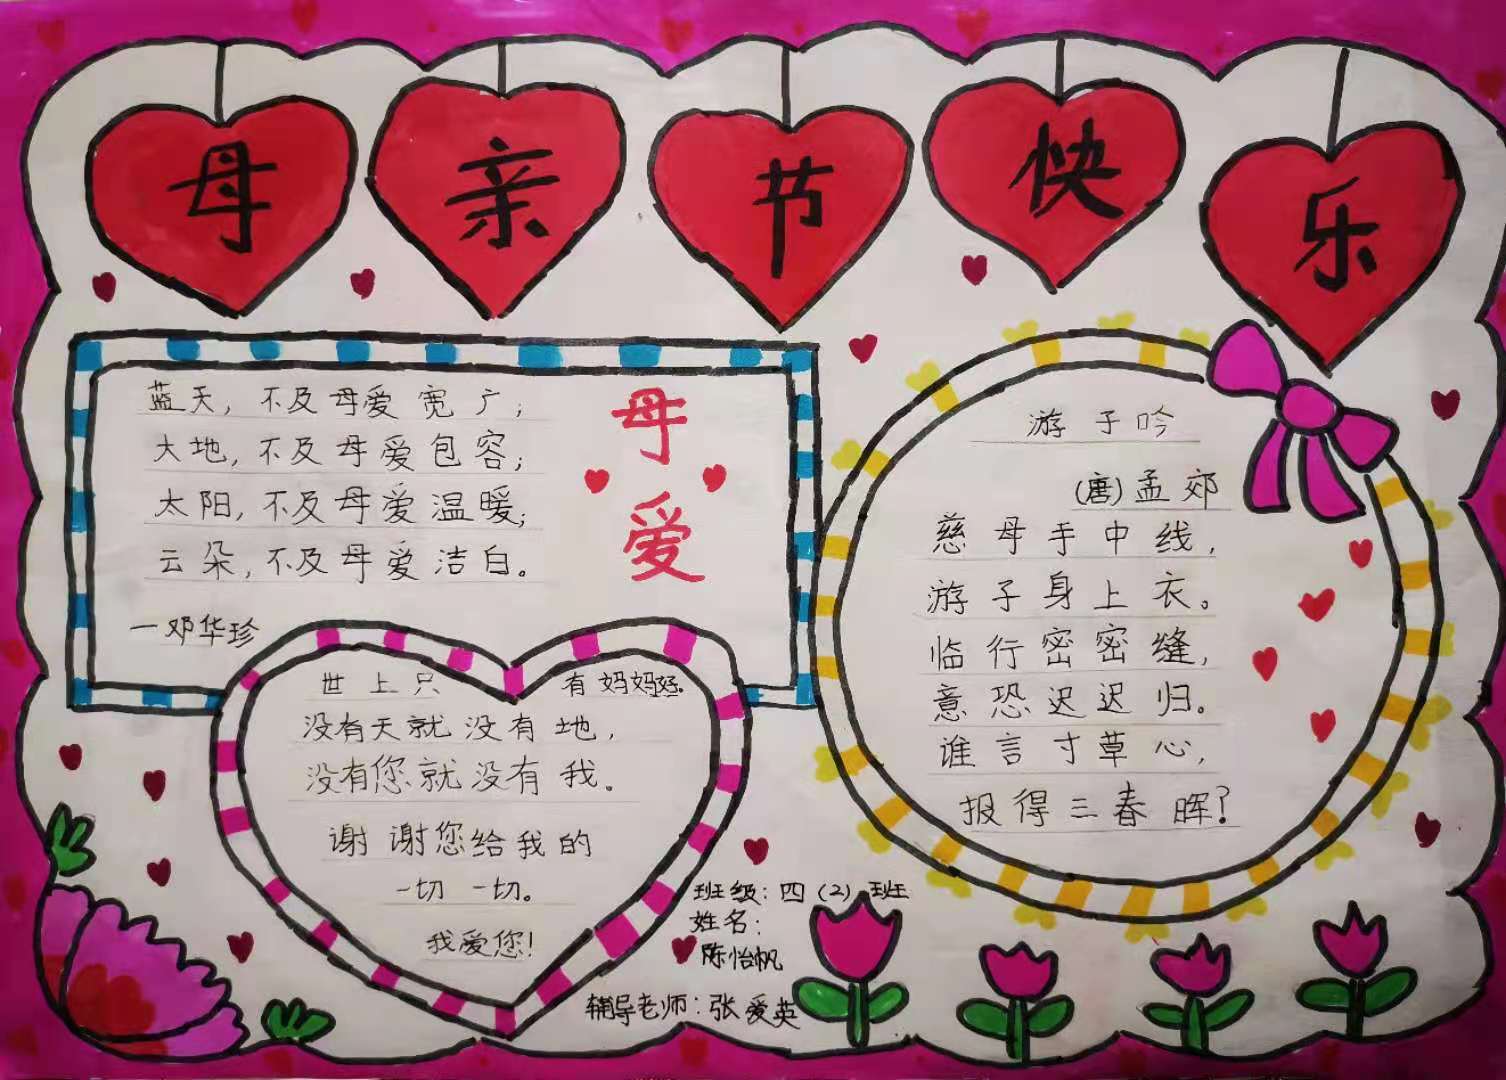 母亲节快乐
蓝天，不及母爱宽广；
大地，不及母爱包容；
太阳，不及母爱温暖；
云朵，不及母爱洁白。
一邓华珍
母爱
世上只有妈妈好。
没有天就没有地，
没有您就没有我。
谢谢您给我的
一切一切。
我爱您！
游子吟
（唐）孟郊
慈母手中线，
游子身上衣。
临行密密缝，
意恐迟迟归。
谁言寸草心，
报得三春晖？
班级：四（2）班
姓名：
陈怡帆
辅导老师：张爱英